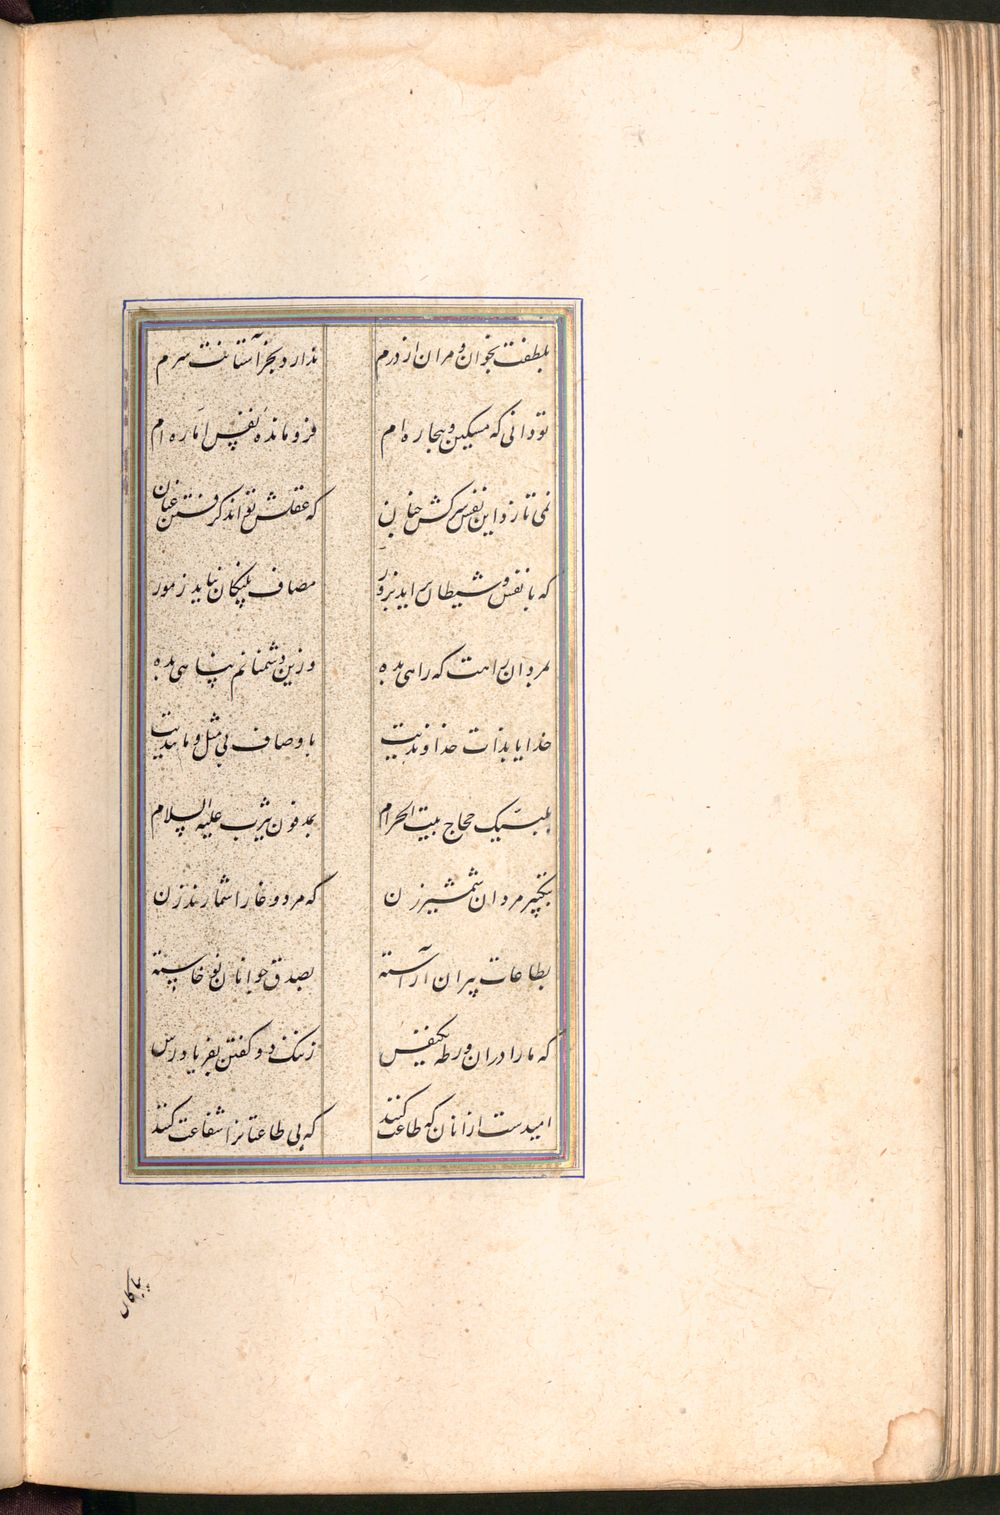 بلطفت بخوان و مران از درم ندارد بجز آستانت سرم
تو دانی که مسکین و بیچاره ام فرومانده نفس اماره ام
نمی تازد این نفس سرکش چنان که عقلش تواند گرفتن عنان
که با نفس و شیطان براید بزور مصاف پلنگان نیاید ز مور
بمردان راهت که راهی بده وزین دشمنانم پناهی بده
خدایا بذات خداوندیت باوصاف بی مثل و مانندیت
بلبیک حجاج بیت الحرام بمدفون یثرب علیه السلام
بتکبیر مردان شمشیرزن که مرد وغا را شمارند زن
بطاعات پیران آراسته بصدق جوانان نوخاسته
که ما را دران ورطه یکنفس ز ننک دو کفتن بفریاد رس
امیدست ازانان که طاعت کنند که بی طاعتانرا شفاعت کنند
بپاکان